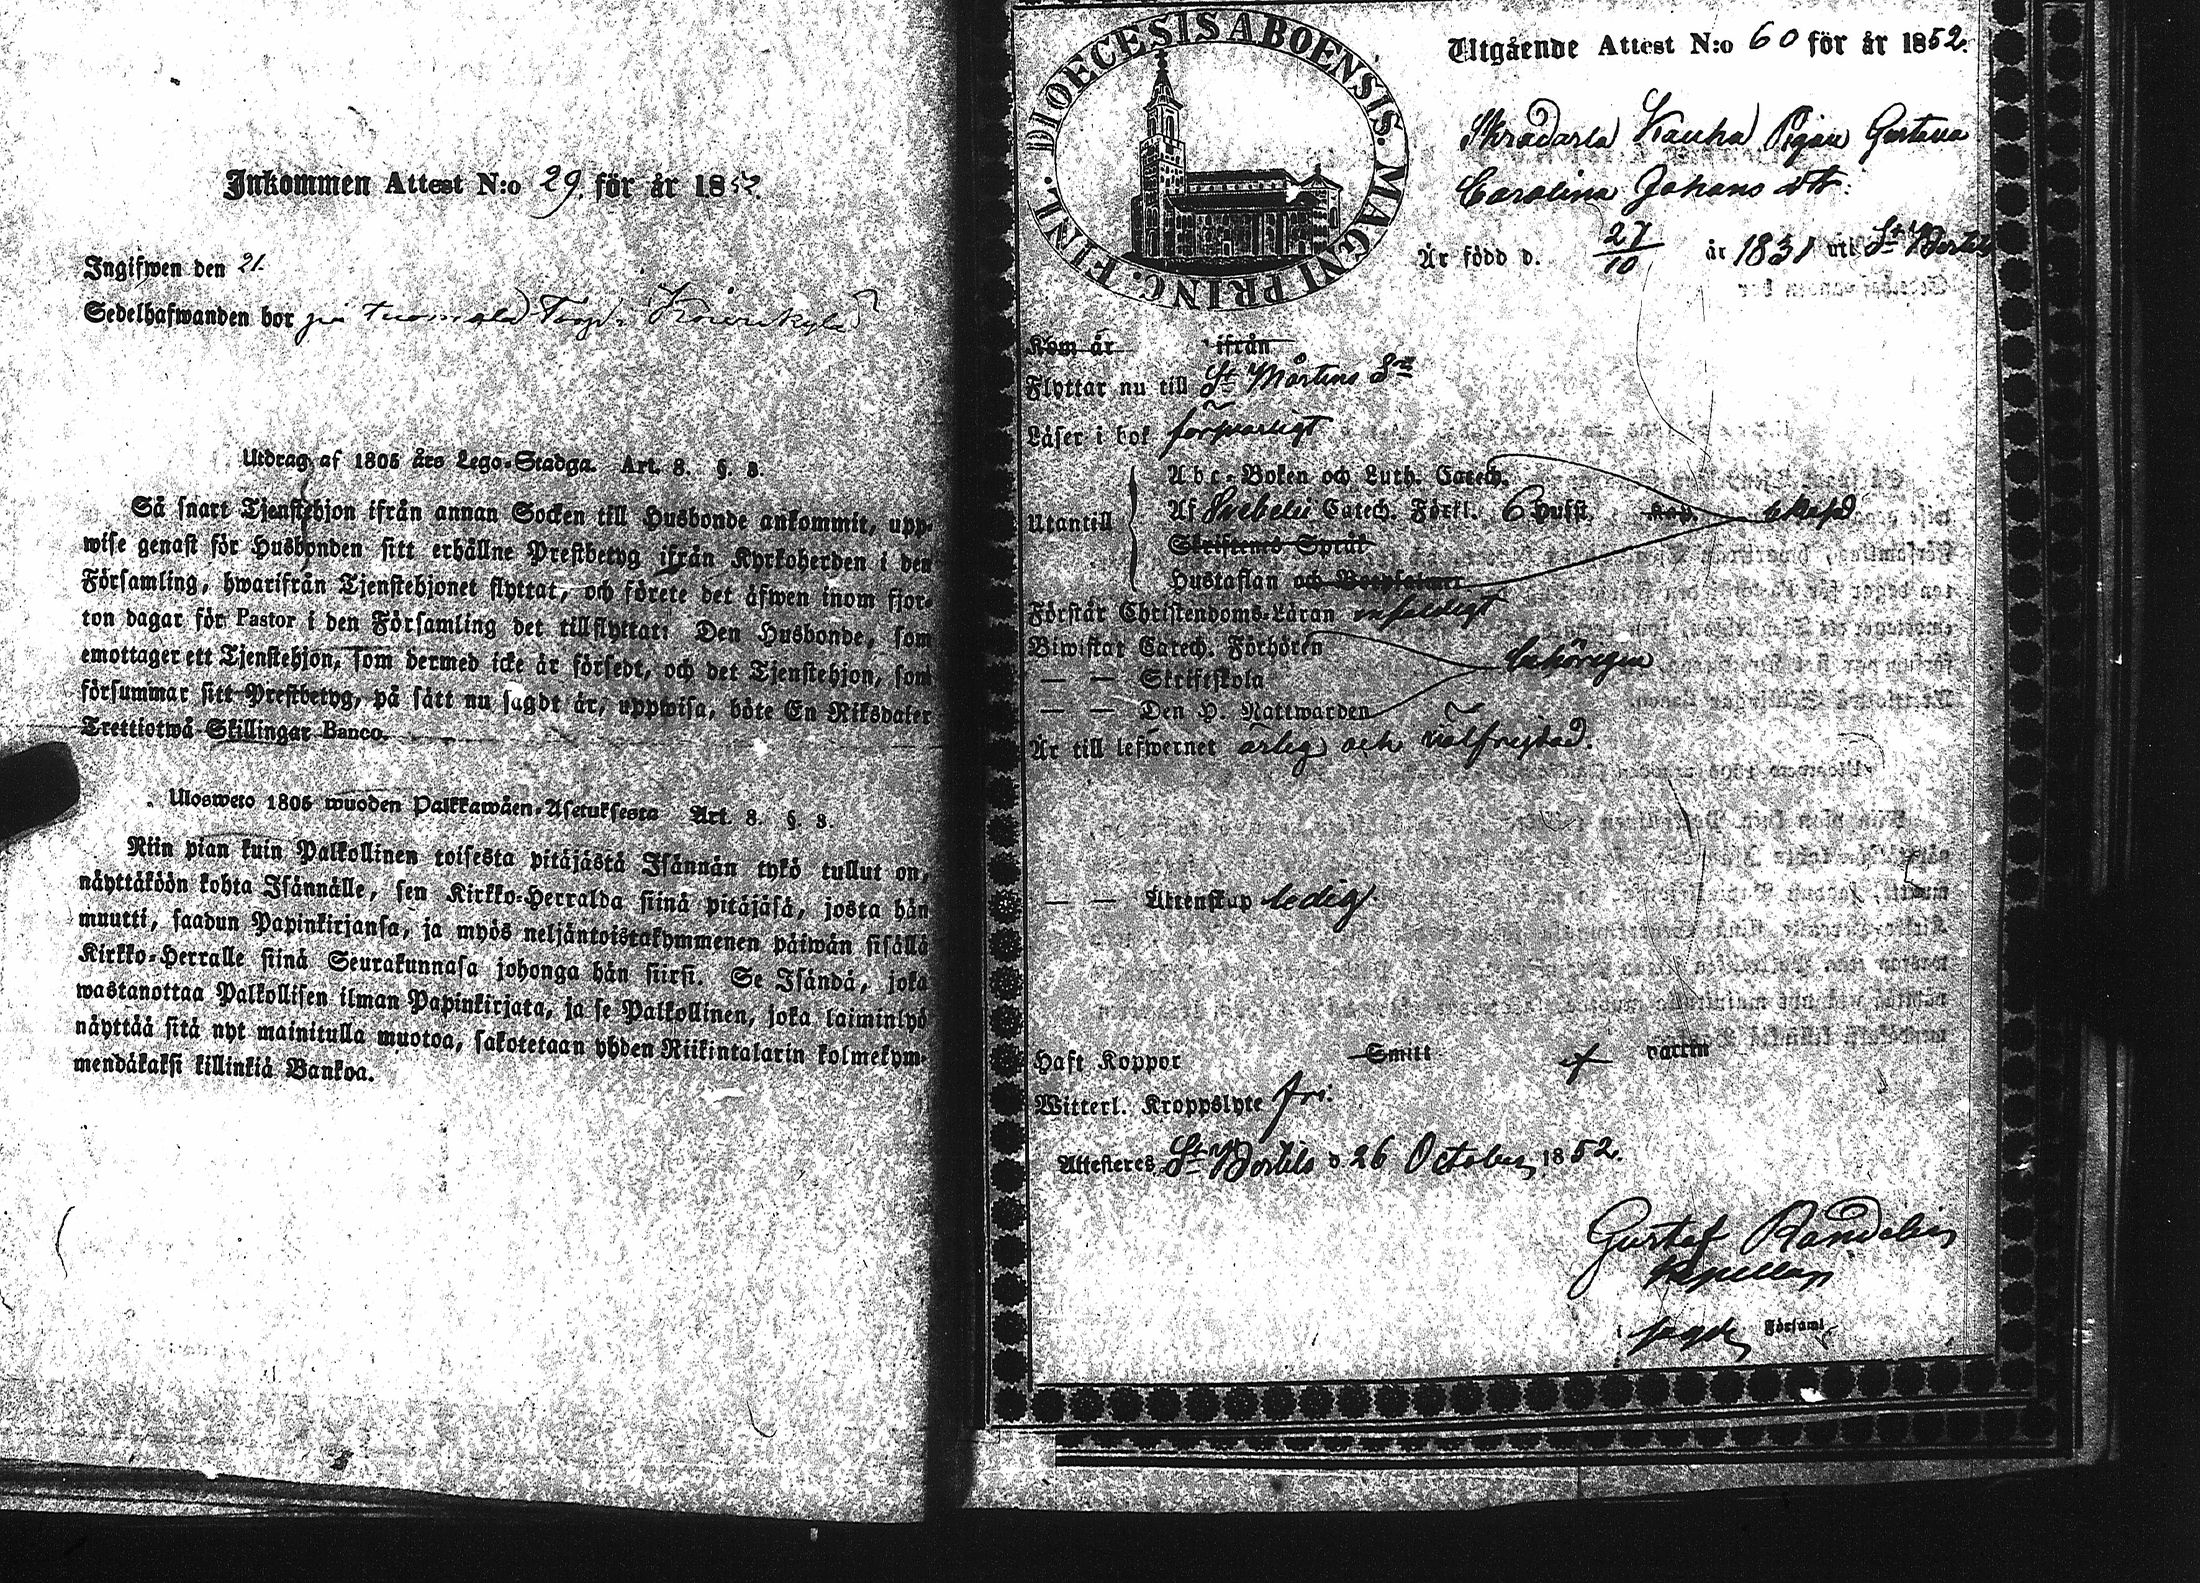 Inkommen Attest N:o 29. för år 1852.
Ingifwen den 21.
Sedelhafwanden bor på Torp.
Utdrag af 1805 års Lego-Stadga. Art. 8. §. 8.
Så snart Tjenstehjon ifrån annan Socken till Husbonde ankommit, upp-
wise genast för Husbonden sitt erhållne Prestbetyg ifrån Kyrkoherden i den
Församling, hwarifrån Tjenstehjonet flyttat, och förete det äfwen inom fjor-
ton dagar för Pastor i den Församling det tillflyttat: Den Husbonde, som
emottager ett Tjenstehjon, som dermed icke är försedt, och det Tjenstehjon, som
försummar sitt Prestbetyg, på sätt nu sagdt är, uppwisa, böte En Riksdaler
Trettiotwå Skillingar Banco.
Ulosweto 1805 wuoden Palkkawäen-Asetuksesta Art. 8. §. 8.
Niin pian kuin Palkollinen toisesta pitäjästä Isännän tykö tullut on,
näyttäköön kohta Isännälle, sen Kirkko-Herralda siinä pitäjäsä, josta hän
muutti, saadun Papinkirjansa, ja myös neljäntoistakymmenen päiwän sisällä
Kirkko-Herralle siinä Seurakunnasa johonga hän siirsi. Se Isändä, joka
wastanottaa Palkollisen ilman Papinkirjata, ja se Palkollinen, joka laiminlyö
näyttää sitä nyt mainitulla muotoa, sakotetaan yhden Riikintalarin kolmekym-
mendäkaksi killinkiä Bankoa.
DIOECESIS ABOENSIS. MAGNI PRINC. FINL.
Utgående Attest N:o 60 för år 1852.
Skradarla Kauha Pigan Gustava
Carolina Johans dtr.
Är född d. 27/10 år 1831 uti St Bertils
Kom år ifrån
Flyttar nu till St Mårtens Sn
Läser i bok försvarligt
Utantill
Abc-Boken och Luth. Catech.
Af Svebelii Catech. Förkl. 6 hufst. kap.
Skriftenes Språk
Hustaflan och Botpsalmer
Förstår Christendoms-Läran
Biwistar Catech. Förhören behörigen
— — Skriftskola
— — Den H. Nattwarden
Är till lefwernet ärlig och välfrejdad.
— — Äktenskap ledig.
Haft Koppor Smitt Vaccin
Witterl. Kroppslyte fri.
Attesteres St Bertils d 26 October 1852.
Gustaf Randelin
Kapellan
i Församl.